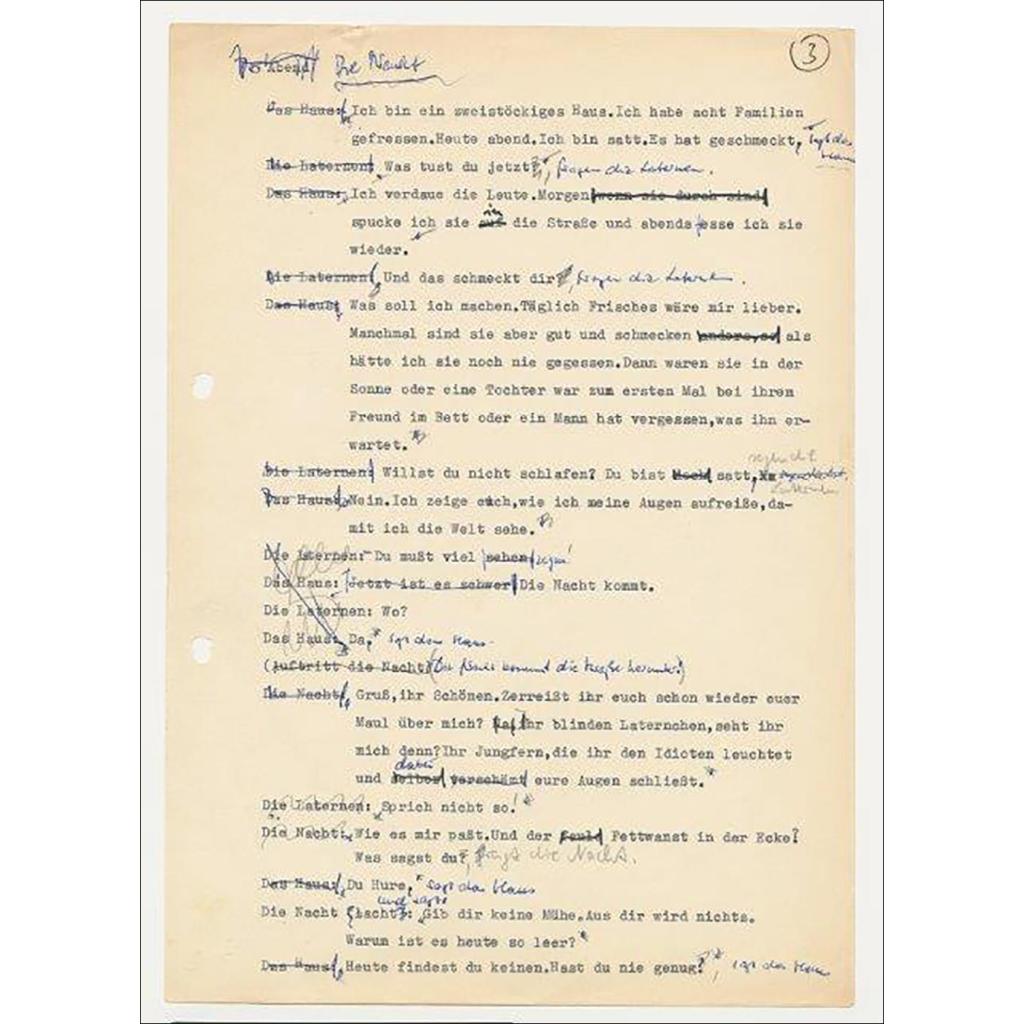 3
Abend Die Nacht
Das Haus: Ich bin ein zweistöckiges Haus.Ich habe acht Familien
gefressen.Heute abend.Ich bin satt.Es hat geschmeckt, sagt das Haus
Die Laternen: Was tust du jetzt?, fragen die Laternen.
Das Haus: Ich verdaue die Leute.Morgen wenn sie durch sind
spucke ich sie auf in die Straße und abends esse ich sie
wieder.
Die Laternen: Und das schmeckt dir?, fragen die Laternen.
Das Haus: Was soll ich machen.Täglich Frisches wäre mir lieber.
Manchmal sind sie aber gut und schmecken anders,so als
hätte ich sie noch nie gegessen.Dann waren sie in der
Sonne oder eine Tochter war zum ersten Mal bei ihrem
Freund im Bett oder ein Mann hat vergessen,was ihn er-
wartet.
Die Laternen: Willst du nicht schlafen? Du bist satt,
Das Haus: Nein.Ich zeige euch,wie ich meine Augen aufreiße,da-
mit ich die Welt sehe.
Die Laternen: Du mußt viel sehen
Das Haus: Jetzt ist es schwer Die Nacht kommt.
Die Laternen: Wo?
Das Haus: Da, sagt das Haus.
(Auftritt die Nacht) (Die Nacht kommt die Treppe herunter.)
Die Nacht: Gruß,ihr Schönen.Zerreißt ihr euch schon wieder euer
Maul über mich? Ihr blinden Laternchen,seht ihr
mich denn?Ihr Jungfern,die ihr den Idioten leuchtet
und selber dabei verschämt eure Augen schließt.
Die Laternen: Sprich nicht so!
Die Nacht: Wie es mir paßt.Und der Fettwanst in der Ecke?
Was sagst du?, fragt die Nacht.
Das Haus: Du Hure, sagt das Haus
Die Nacht (lacht): und sagt Gib dir keine Mühe.Aus dir wird nichts.
Warum ist es heute so leer?
Das Haus: Heute findest du keinen.Hast du nie genug?, sagt das Haus